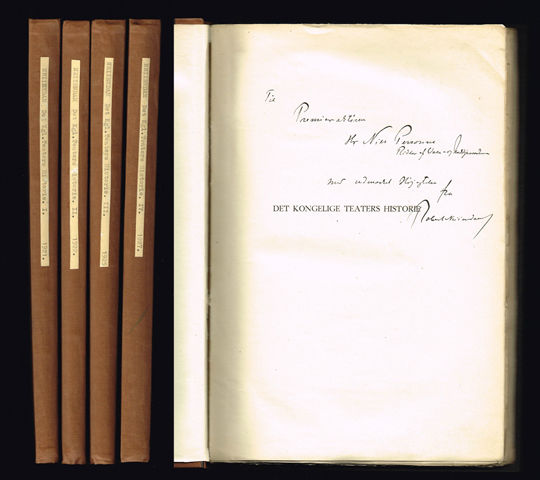 NEIIENDAM Det Kgl. Teaters Historie. I. 1921.
NEIIENDAM Det Kgl. Teaters Historie. II. 1922.
NEIIENDAM Det Kgl. Teaters Historie. III. 1925
NEIIENDAM Det Kgl. Teaters Historie. IV. 1927.
Til
Premieraktören
Hr Nils Personne
med udmærket Højagtelse
fra
DET KONGELIGE TEATERS HISTORIE
Robert Neiiendam